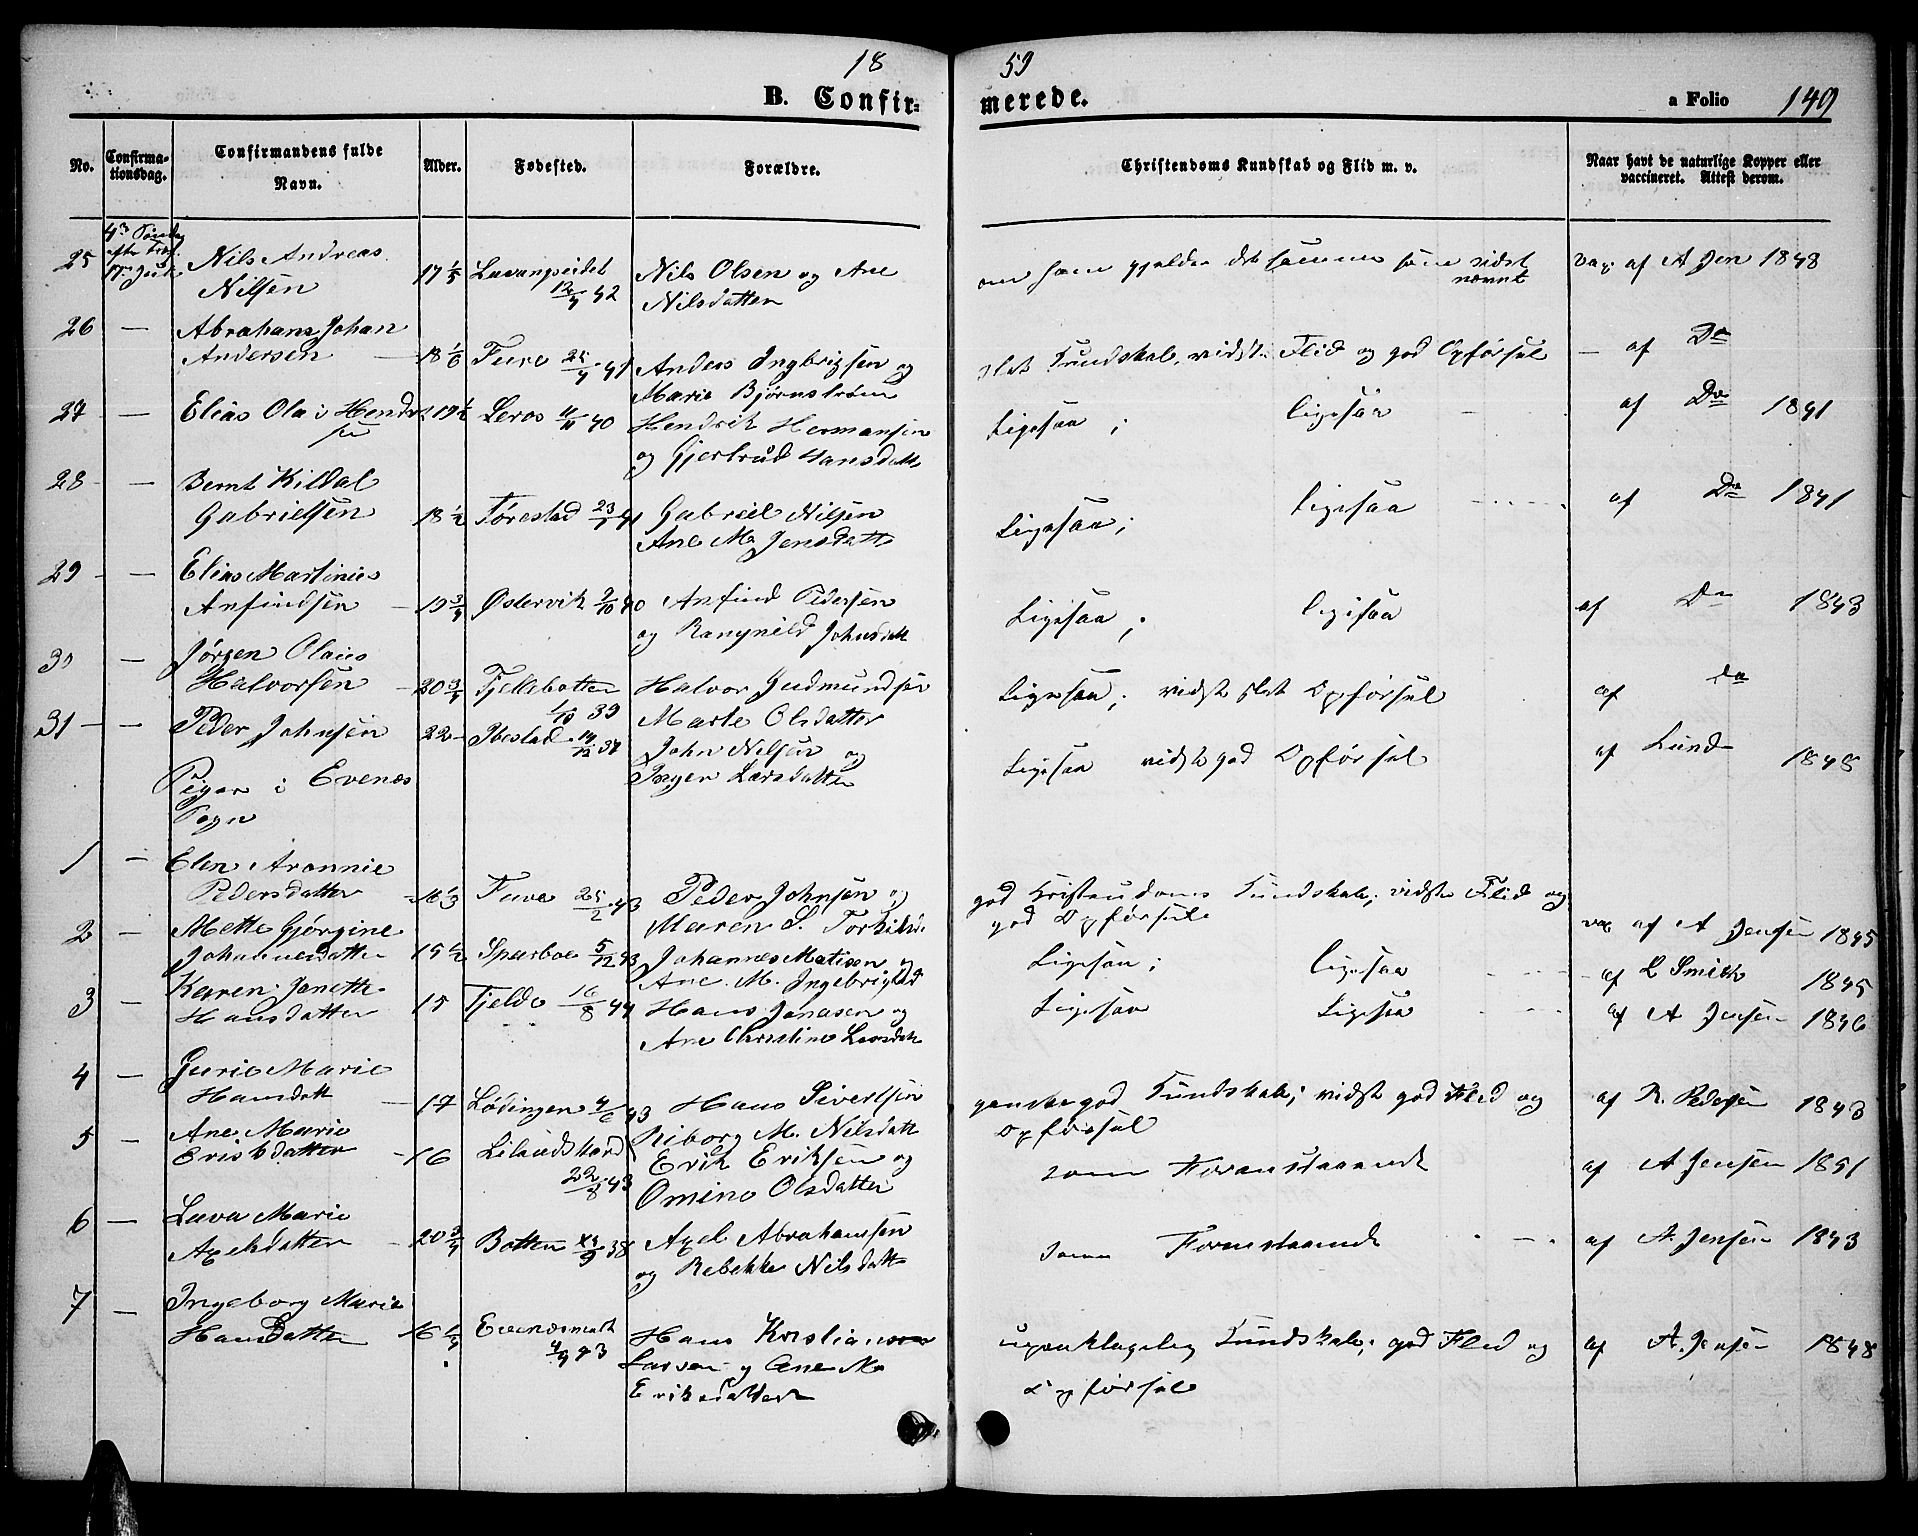 18 59
B. Confirmerede.
a Folio 149
No.
Confirmationsdag.
Confirmandens fulde Navn.
Alder.
Fødested.
Forældre.
Christendoms Kundskab og Flid m. v.
Naar havt de naturlige Kopper eller vaccineret. Attest derom.
25 Nils Andreas Nilsen 17 1/5 Lavangseidet 12/4 42 Nils Olsen og Ane Nilsdatter om ham gjelder det samme som vidst nævnt vax af A Jen 1848
26 — Abraham Johan Andersen 18 1/6 Fuxe 25/4 41 Anders Ingbrigtsen og Marie Bjørnstrøm slet Kundskab, vidst Flid og god Opførsel — af Do
27 — Elias Olai Hendriksen 19 1/2 Leros 11/11 40 Hendrik Hermansen og Gjertrud Hansdatt Ligesaa ; ligesaa af Do 1841
28 — Bernt Kildal Gabrielsen 18 1/2 Tørestad 23/1 41 Gabriel Nilsen Ane M. Jensdatt Ligesaa ; ligesaa af Do 1841
29 — Elias Martinius Anfindsen 19 3/4 Østervik 2/10 40 Anfind Pedersen og Rangnild Johnsdatt Ligesaa ; ligesaa af Do 1843
30 — Jørgen Olaus Halvorsen 20 3/4 Fjellebotten 1/10 39 Halvor Gudmundsen Marte Olsdatter Ligesaa ; vidst slet Opførsel af do
31 — Peder Johnsen 22 Ibestad 14/12 37 John Nilsen og Inger Larsdatter Ligesaa vidst god Opførsel af Lund 1848
Piger i Evenæs Sogn
1 — Elen Aronnie Pedersdatter 16 1/3 Fuxe 25/2 43 Peder Johnsen og Maren S. Torkilsd. god Kristendoms Kundskab, vidste Flid og god Opførsel vax af A Jensen 1845
2 — Mette Gjørgine Johannesdatter 15 1/2 Sparboe 5/12 43 Johannes Matisen og Ane M. Ingebrigtsd Ligesaa ; ligesaa — af L Smith 1845
3 — Karen Janette Hansdatter 15 Tjelde 16/8 44 Hans Jonasen og Ane Christine Larsdatt Ligesaa Ligesaa af A Jensen 1846
4 — Gurie Marie Hansdatt 17 Lødingen 4/6 43 Hans Sivertsen Riborg M. Nilsdatt ganske god Kundskab ; vidst god Flid og Opførsel af R. Pedersen 1843
5 — Ane Marie Eriksdatter 16 Lilandskard 22/8 43 Erik Eriksen og Omine Olsdatter som Foranstaaende af A Jensen 1851
6 — Lava Marie Axelsdatter 20 3/4 Botten 9 38 Axel Abrahamsen og Rebekke Nilsdatt som Foranstaaende af A. Jensen 1843
7 — Ingeborg Marie Hansdatter 16 1/4 Evenesmark 4/4 43 Hans Kristiansen Larsen og Ane M. Eriksdatter upaaklagelig Kundskab, god Flid og Opførsel af A. Jensen 1848